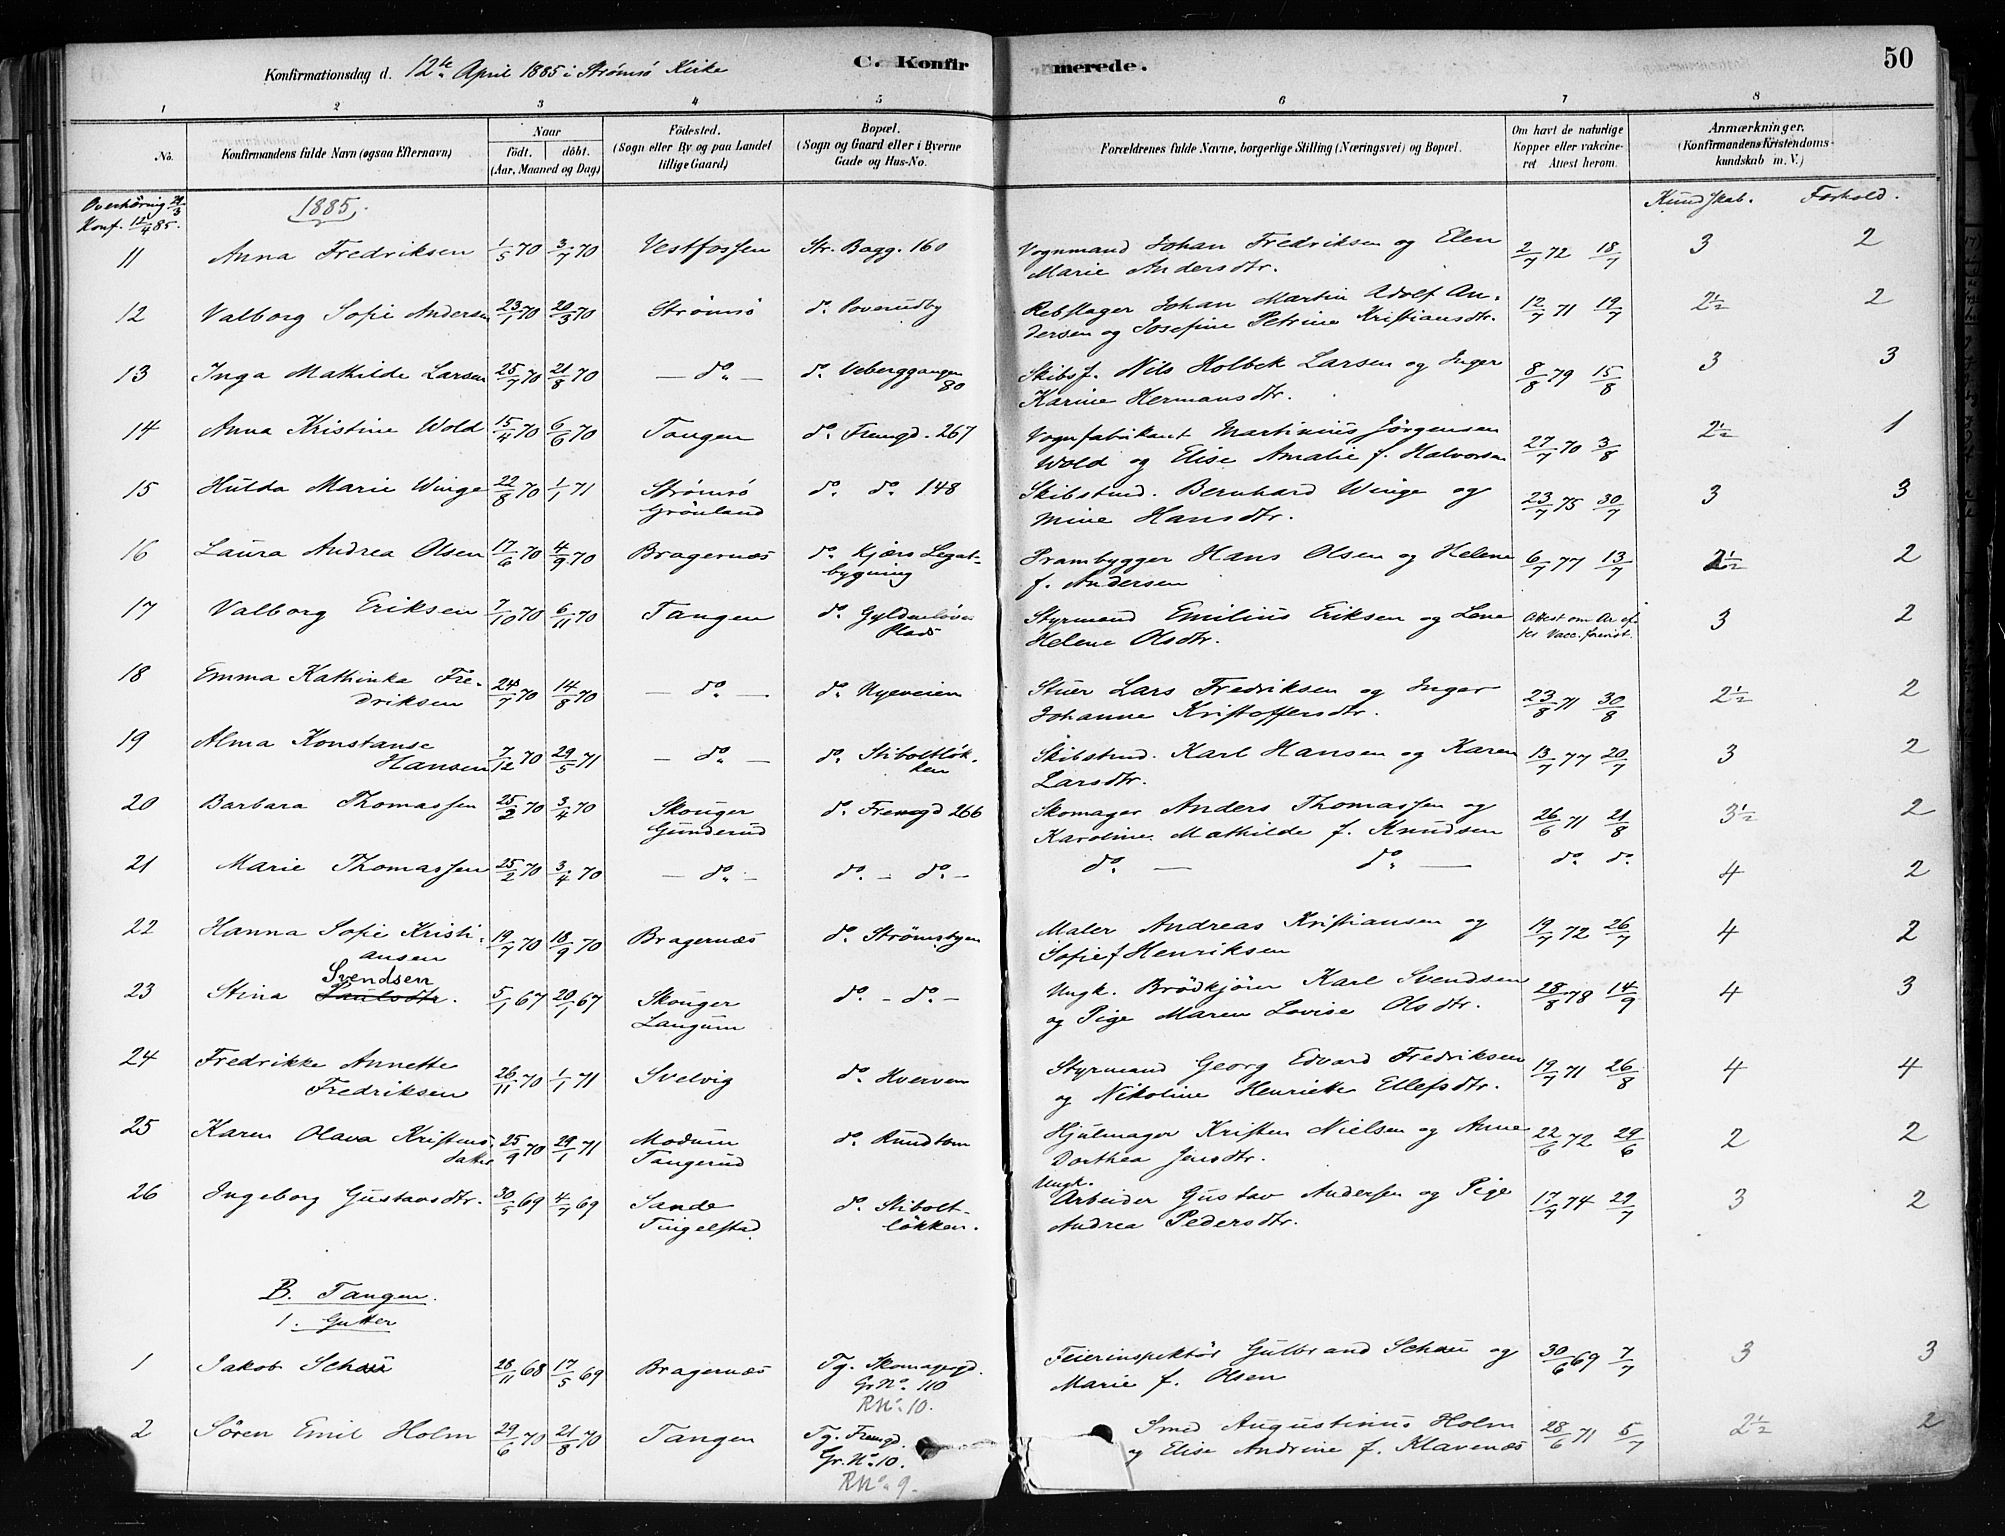 50
Konfirmationsdag d. 12te April 1885 i Strømsø Kirke
C. Konfirmerede.
1 2 3 4 5 6 7 8
No. Konfirmandens fulde Navn (ogsaa Efternavn) Naar Født. døbt. (Aar, Maaned og Dag) Fødested. (Sogn eller By og paa Landet tillige Gaard) Bopæl. (Sogn og Gaard eller i Byerne Gade og Hus-No. Forældrenes fulde Navne, borgerlige Stilling (Næringsvei) og Bopæl. Om havt de naturlige Kopper eller vakcineret Attest herom. Anmærkninger. (Konfirmandens Kristendomskundskab m. V.)
Overhøring 29/3 1885. Kundskab. Forhold.
Konf. 12/4 85.
11 Anna Fredriksen 1/5 70 3/7 70 Vestfossen Str. Bagg. 160 Vognmand Johan Fredriksen og Elen 2/7 72 18/7 3 2
Marie Andersdtr.
12 Valborg Sofie Andersen 23/1 70 20/3 70 Strømsø do. Coverudby Rebslager Johan Martin Adolf An- 12/7 71 19/7 2½ 2
dersen og Josefine Petrine Kristiansdtr.
13 Inga Mathilde Larsen 25/7 70 21/8 70 — do. — do. Veberggangen Skibsf. Nils Holbek Larsen og Inger 8/8 79 15/8 3 3
80 Karine Hermansdtr.
14 Anna Kristine Wold 15/4 70 6/6 70 Tangen do. Tremgd. 267 Vognfabrikant Martinius Jørgensen 27/7 70 3/8 2½ 1
Wold og Elise Amalie f. Halvorsen
15 Hulda Marie Winge 22/8 70 1/1 71 Strømsø do. do. 148 Skibstmd. Bernhard Winge og 23/7 75 30/7 3 3
Grönland Mine Hansdtr.
16 Laura Andrea Olsen 17/6 70 4/9 70 Bragernæs do. Kjærs Legat- Prambygger Hans Olsen og Helene 6/7 77 13/7 2½ 2
bygning f. Andersen
17 Valborg Eriksen 7/10 70 6/11 70 Tangen do. Gyldenløves Styrmand Emilius Eriksen og Lene Attest om Ar ef- 3 2
Plads Helene Olsdtr. ter Vacc. forevist.
18 Emma Kathinka Fre- 24/7 70 14/8 70 — do. — do. Nyeveien Stuer Lars Fredriksen og Inger 23/8 71 30/8 2½ 2
driksen Johanne Kristoffersdtr.
19 Alma Konstanse 7/12 70 29/5 71 — do. — do. Stiboltløk- Skibstmd. Karl Hansen og Karen 13/7 77 20/7 3 2
Hansen ken Larsdtr.
20 Barbara Thomassen 25/2 70 3/4 70 Skouger do. Tremgd 266 Skomager Anders Thomassen og 26/6 71 21/8 3½ 2
Gunderud Karoline Mathilde f. Knudsen
21 Marie Thomassen 25/2 70 3/4 70 — do. — do. — do. — do. — do. — do. do. 4 2
22 Hanna Sofie Kristi- 19/7 70 18/9 70 Bragernæs do. Strømsbyen Maler Andreas Kristiansen og 19/7 72 26/7 4 2
ansen Sofie f Henriksen
Svendsen
23 Stina Paulsdtr. 5/1 67 20/1 67 Skouger do. — do. — Ungk. Brödkjører Karl Svendsen 28/8 78 14/9 4 3
Langum og Pige Maren Lovise Olsdtr.
24 Fredrikke Annette 26/11 70 1/1 71 Svelvig do. Hverven Styrmand Georg Edvard Fredriksen 19/7 71 26/8 4 4
Fredriksen og Nikoline Henriette Ellefsdtr.
25 Karen Olava Kristens- 25/9 70 29/1 71 Modum do. Rundtom Hjulmager Kristen Nielsen og Anne 22/6 72 29/6 2 2
datter Tangerud Dorthea Jensdtr.
26 Ingeborg Gustavsdtr. 30/5 69 4/7 69 Sande do. Stibolt- Ungk. Arbeider Gustav Andersen og Pige 17/7 74 29/7 3 2
Tingelstad. løkken. Andrea Pedersdtr.
B. Tangen.
1. Gutter
1 Jakob Schau 28/11 68 17/5 69 Bragernæs Tg. Skomagergd. Feierinspektør Gulbrand Schau og 30/6 69 7/7 3 3
Gr No. 110 Marie f. Olsen
RNo. 10.
2 Søren Emil Holm 29/6 70 21/8 70 Tangen Tg. Tremgd. Smed Augustinus Holm 28/6 71 5/7 2½ 2
Gr. No. 10. og Elise Andrine f. Klavenæs
RNo. 9.